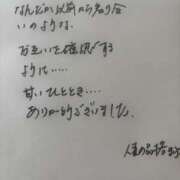 なんだか以前から知り合
いのような、
互いを確認する
ような.....
甘いひととき....
ありがとうございました。